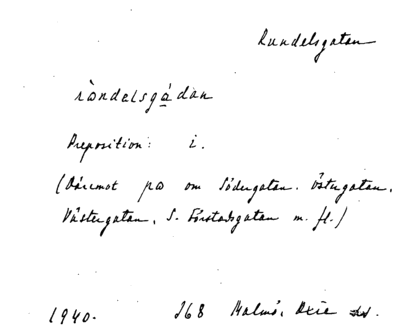 Rundelsgatan
ràndelsgádan
Preposition: i.
(Däremot på om Södergatan. Östergatan.
Västergatan, S. Förstadsgatan m. fl.)
1940. 268 Malmö, Oxie